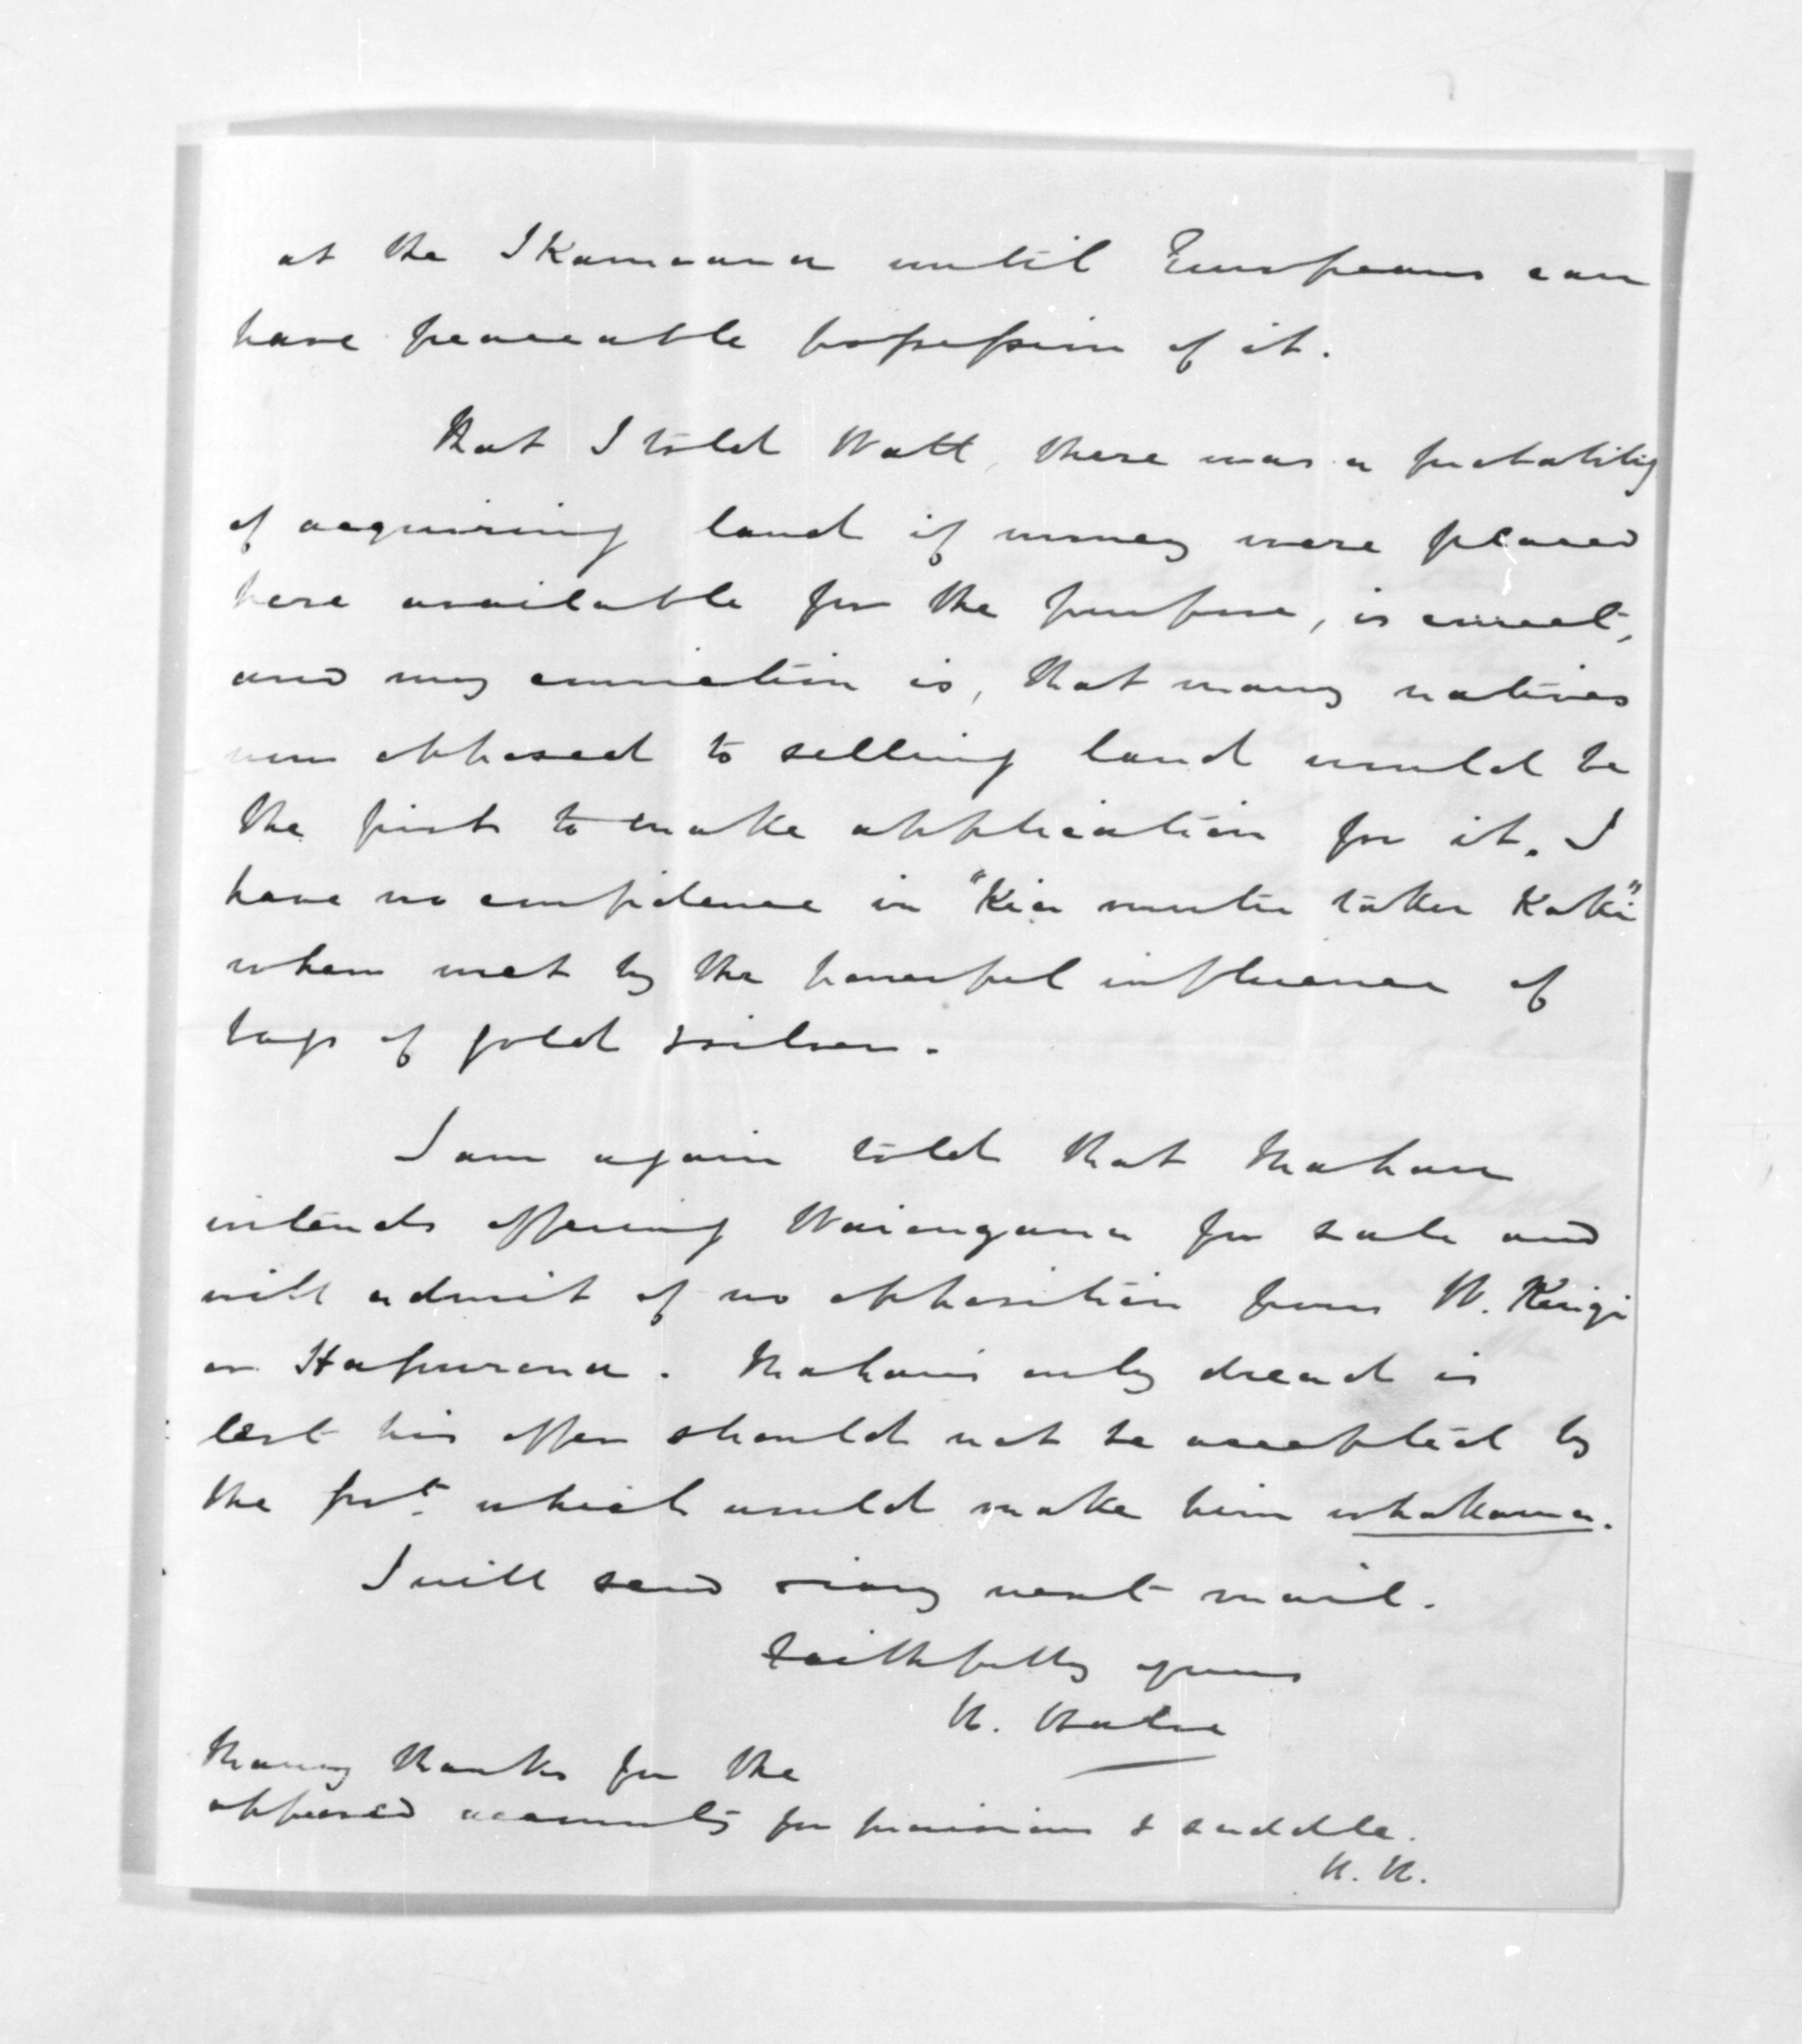 at the Ikamoana until Europeans can
have peaceable possession of it.
That I told Watt, there was a probability
of acquiring land if money were placed
here available for the purpose, is correct,
and my conviction is, that many natives
now opposed to selling land would be
the first to make application for it. I
have no confidence in "Kia mutu taku Kaki"
when met by the powerful influence of
bags of gold & silver.
I am again told that Mahau
intends offering Waiongana for sale and
will admit of no opposition from W. Kingi
or Hapurona. Mahau's only dread is
lest his offer should not be accepted by
the Govt. which would make him whakama.
I will send diary next mail.
Faithfully yours
H. Halse
Many thanks for the
approved accounts for provisions & saddle.
H. H.